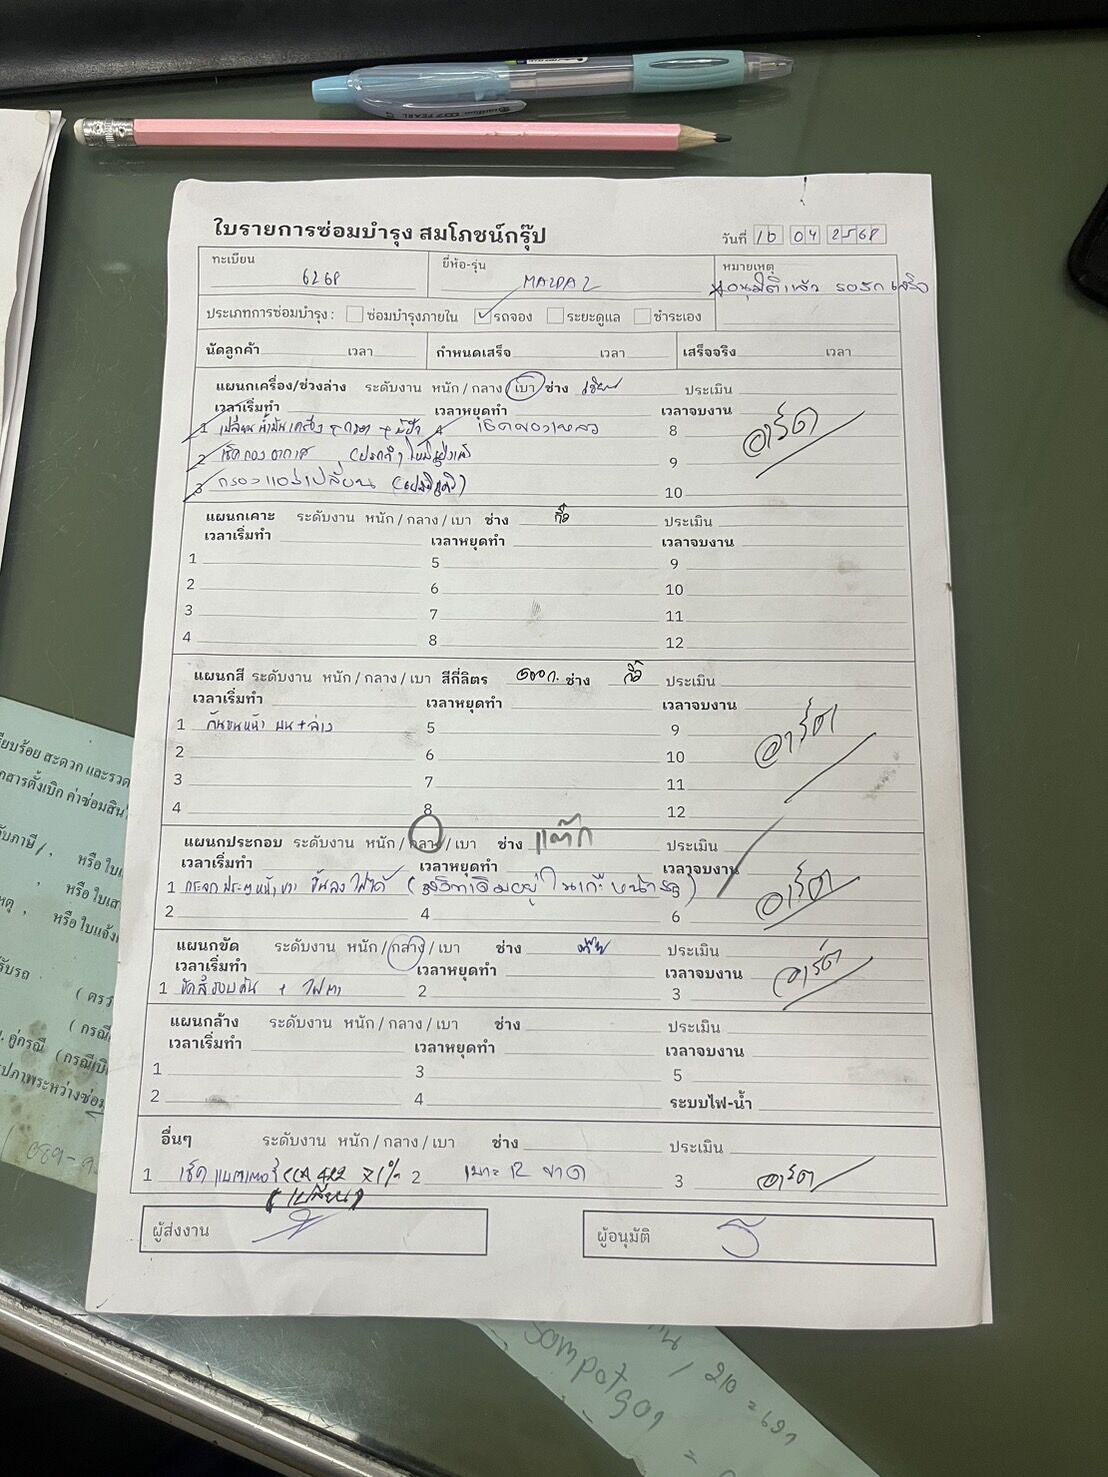 ใบรายการซ่อมบำรุง สมโภชน์กรุ๊ป
วันที่ 10 04 2568
ทะเบียน 6268
ยี่ห้อ-รุ่น MAZDA 2
หมายเหตุ อนุมัติแล้ว รอรถเสร็จ
ประเภทการซ่อมบำรุง : ซ่อมบำรุงภายใน รถจอง ระยะดูแล ชำระเอง
นัดลูกค้า เวลา กำหนดเสร็จ เวลา เสร็จจริง เวลา
แผนกเครื่อง/ช่วงล่าง ระดับงาน หนัก / กลาง / เบา ช่าง ประเมิน
เวลาเริ่มทำ เวลาหยุดทำ เวลาจบงาน
1 เปลี่ยนน้ำมันเครื่อง 4 เช็คของเหลว 8
2 เช็คกรองอากาศ 9
3 กรองแอร์เปลี่ยน 10
อาร์ต
แผนกเคาะ ระดับงาน หนัก / กลาง / เบา ช่าง กิ๊ ประเมิน
เวลาเริ่มทำ เวลาหยุดทำ เวลาจบงาน
1 5 9
2 6 10
3 7 11
4 8 12
แผนกสี ระดับงาน หนัก / กลาง / เบา สีกี่ลิตร ช่าง ประเมิน
เวลาเริ่มทำ เวลาหยุดทำ เวลาจบงาน
1 กันชนหน้า บน + ล่าง 5 9
2 6 10
3 7 11
4 8 12
อาร์ต
แผนกประกอบ ระดับงาน หนัก / กลาง / เบา ช่าง แต๊ก ประเมิน
เวลาเริ่มทำ เวลาหยุดทำ เวลาจบงาน
1 กระจกประตูหน้าขวา ขึ้นลงไม่ได้
2 4 6
อาร์ต
แผนกขัด ระดับงาน หนัก / กลาง / เบา ช่าง ประเมิน
เวลาเริ่มทำ เวลาหยุดทำ เวลาจบงาน
1 ขัดสีรอบคัน + ไฟตา 2 3
อาร์ต
แผนกล้าง ระดับงาน หนัก / กลาง / เบา ช่าง ประเมิน
เวลาเริ่มทำ เวลาหยุดทำ เวลาจบงาน
1 3 5
2 4 ระบบไฟ-น้ำ
อื่นๆ ระดับงาน หนัก / กลาง / เบา ช่าง ประเมิน
1 เช็คแบตเตอรี่ CCA 422 71% 2 เบาะ R ขาด 3 อาร์ต
(เปลี่ยน)
ผู้ส่งงาน ผู้อนุมัติ
Sompotgor
210